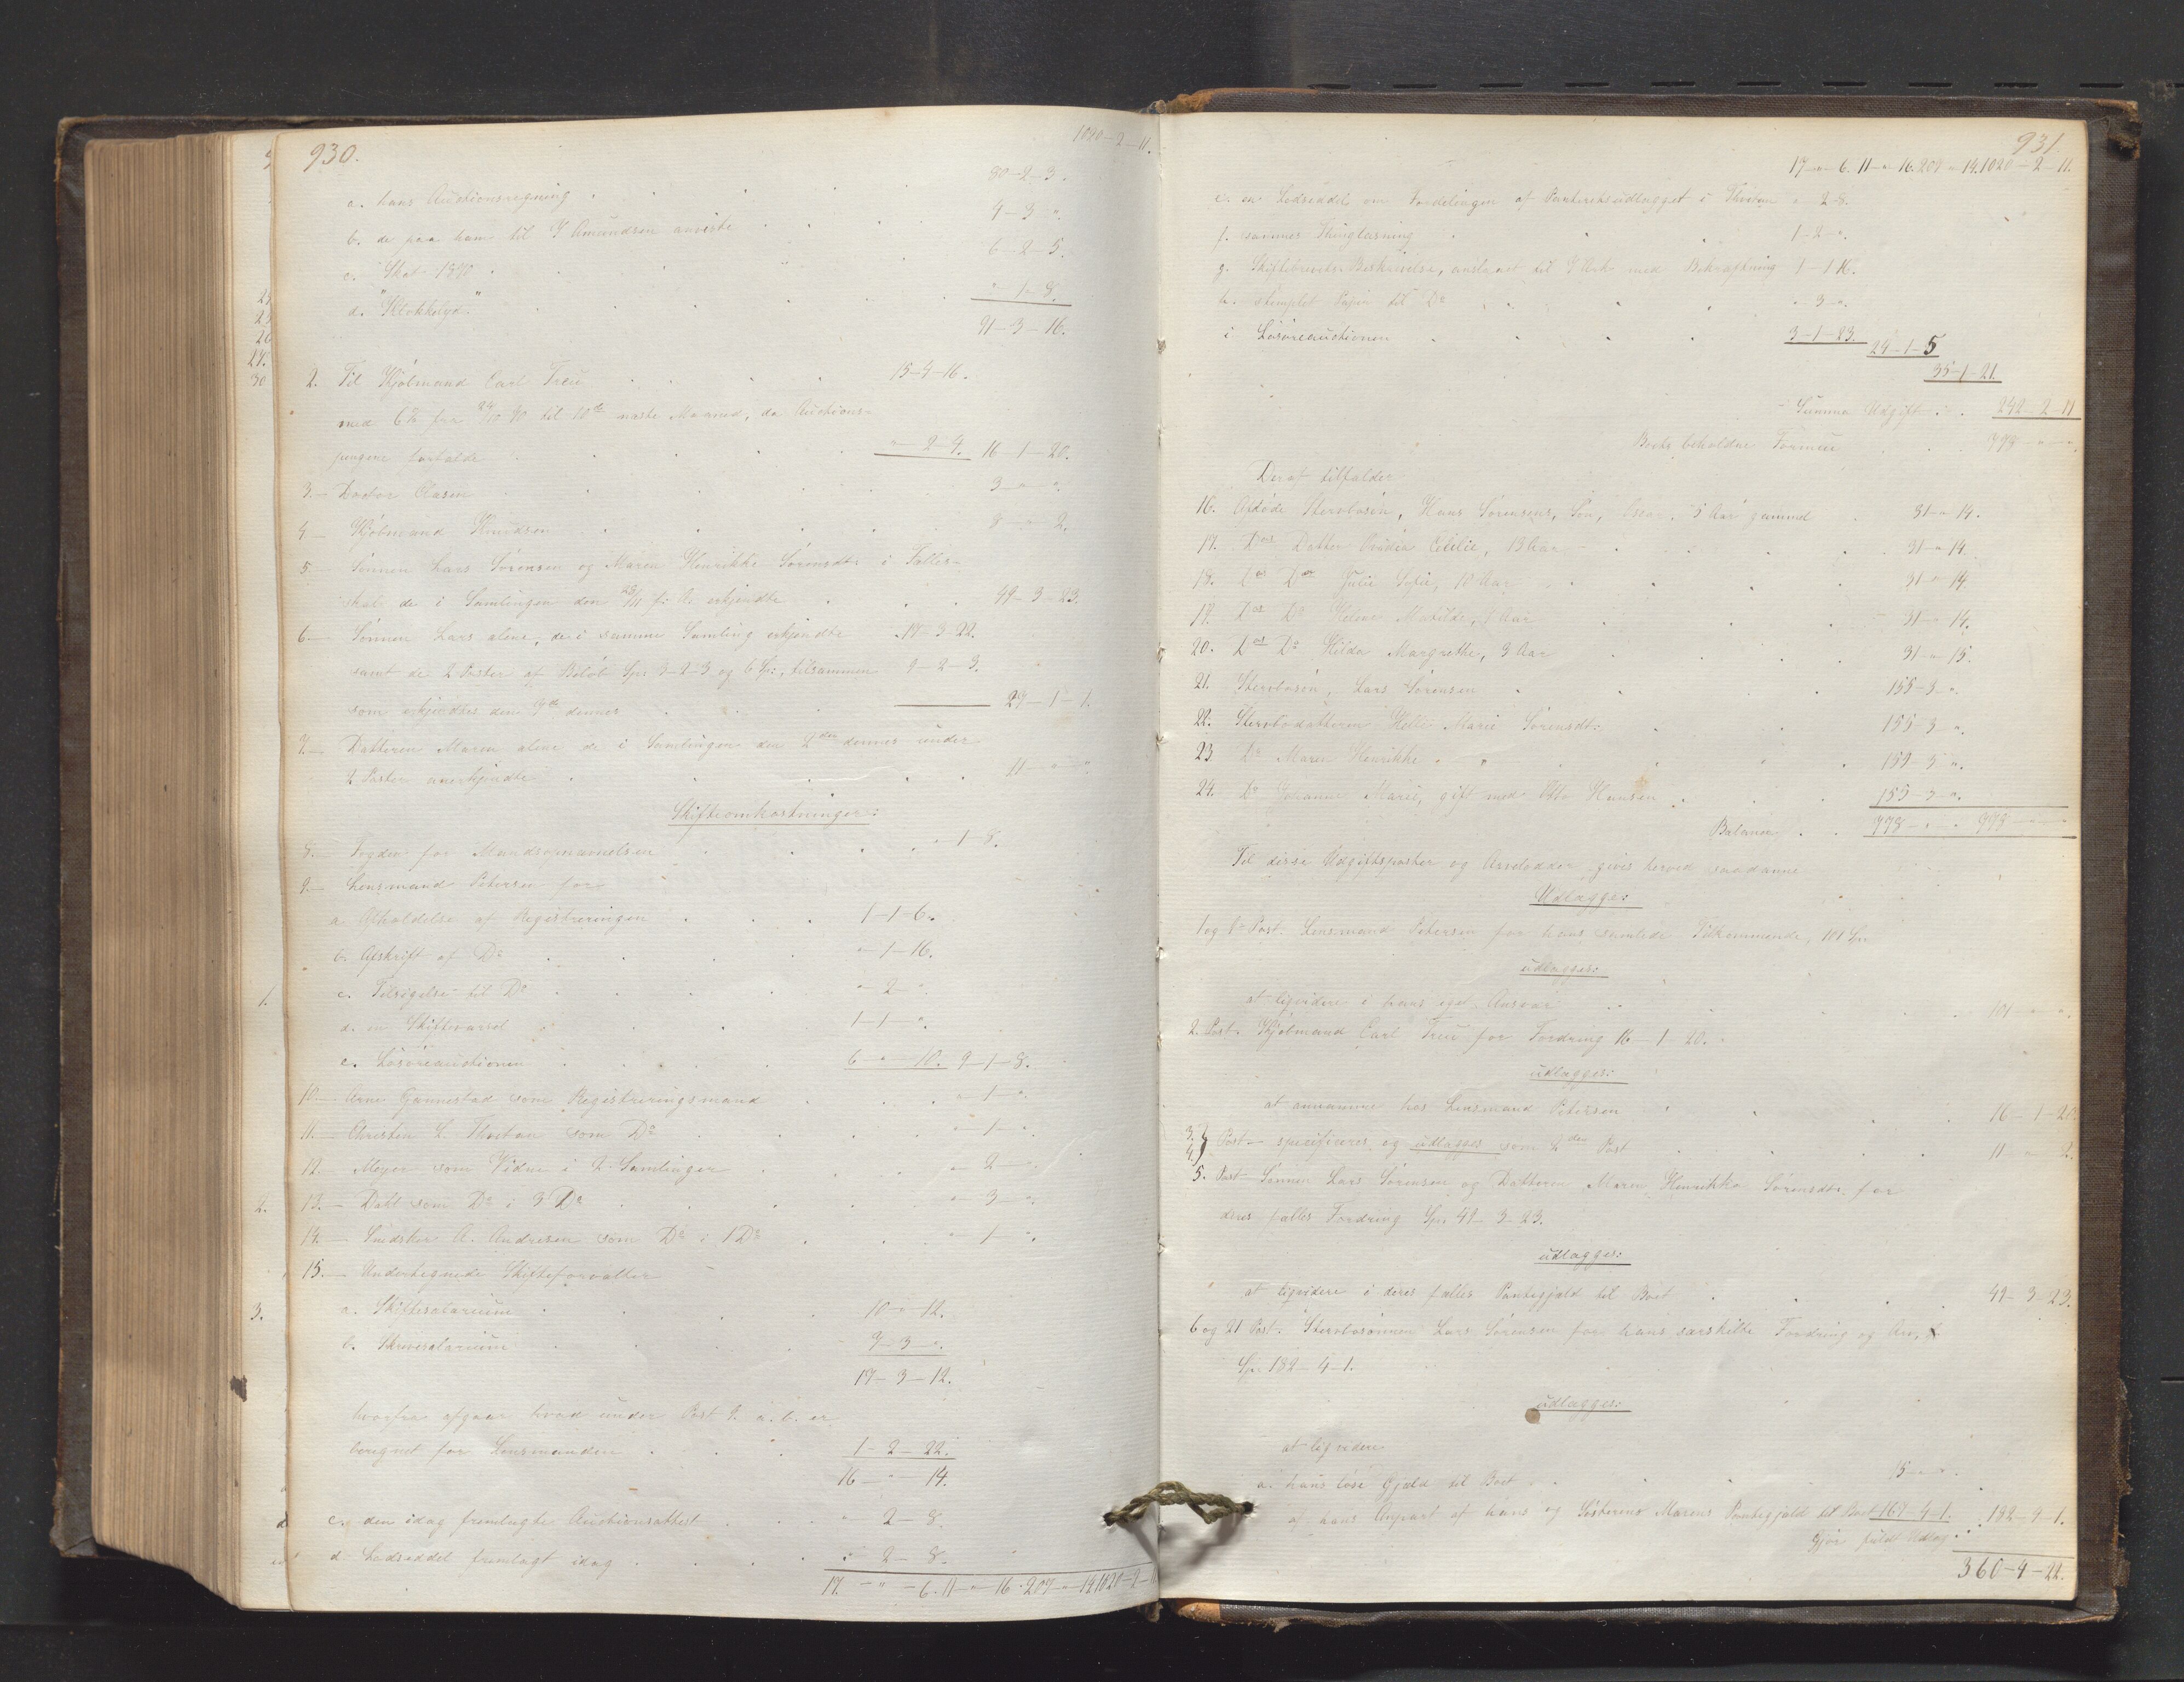 930.
1020-2-11.
a. hans Auctionsregning . 80-2-3.
b. de paa ham til J Amundsen anviste 4-3-".
c. Skat 1870 . 6-2-5.
d. "Klokkelyd" . "-1-8.
91-3-16.
2. Til Kjøbmand Carl Treu 15-4-16.
med 6% fra 70 til 10de næste Maaned, da Auctions-
pengene forfalde "-2-4. 16-1-20.
3.- Doctor Clasen 3-"-".
4- Kjøbmand Knudsen 8-"-2.
5.- Sønnen Lars Sørensen og Maren Henrikke Sørensdtr i Fælles-
skab de i Samlingen den f: A: erkjendte 49-3-23.
6- Sønnen Lars alene, de i samme Samling erkjendte 17-3-22.
samt de 2 Poster af Beløb Sp: 3-2-3 og 6 Sp:, tilsammen 9-2-3.
som erkjendtes den dennes 27-1-1.
7.- Datteren Maren alene de i Samlingen den 2den dennes under
2 Poster anerkjendte 11-"-".
Skifteomkostninger:
8.- Fogden for Mandsopnævnelsen "-1-8.
9.- Lensmand Petersen for
a. Afholdelse af Registreringen 1-1-6.
b. Afskrift af Do "-1-16.
c. Tilsigelse til Do "-2-".
d. en Skiftevarsel 1-1-".
e. Løsøreauctionen 6-"-10. 9-1-8.
10.- Arne Gjennestad som Registreringsmand "-1-".
11.- Christen L. Thvetan som Do "-1-".
12.- Meyer som Vidne i 2 Samlinger "-2-".
13.- Dahl som Do i 3 Do "-3-".
14.- Snedsker A. Andresen som Do i 1 Do "-1-".
15.- Undertegnede Skifteforvalter
a. Skiftesalarium 10-"-12.
b. Skrivesalarium 7-3-".
17-3-12.
hvorfra afgaar hvad under Post 9. a. b. er
beregnet for Lensmanden 1-2-22.
16-"-14.
c. den idag fremlagte Auctionsattest "-2-8.
d. Lodseddel fremlagt idag "-2-8.
17-"-6. 11-"-16. 207-"-14. 1020-2-11
931.
17-"-6. 11-"-16. 207-"-14. 1020-2-11.
e. en Lodseddel om Fordelingen af Panteretsudlægget i Thvetan "-2-8.
f. sammes Thinglæsning 1-2-".
g. Skiftebrevets Beskrivelse, anslaaet til 7 Ark med Bekræftning 1-1-16.
h. stemplet Papir til Do "-3-".
i Løsøreauctionen 3-1-23. 24-1-5
35-1-21.
Summa Udgift . . 242-2-11
Boets beholdne Formue 778-"-".
Deraf tilfalder
16. Afdøde Stervbosøn, Hans Sørensens, Søn, 5 Aar gammel 31-"-14.
17. Des Datter Cecilie, 13 Aar 31-"-14.
18. Des Do Julie Sofie, 10 Aar 31-"-14.
19. Des Do Helene Matilde, Aar 31-"-14.
20. Des Do Hilda Margrethe, 3 Aar 31-"-15.
21. Stervbosøn, Lars Sørensen 155-3-".
22. Stervbodatteren Marie Sørensdtr 155-3-".
23 Do Maren Henrikke . 155-3-".
24. Do Johanne Marie, gift med Otto Hansen 155-3-".
Balance . 778-"-". 778-"-"
Til disse Udgiftsposter og Arvelodder gives herved saadanne
Udlægge:
1 og 9 Post. Lensmand Petersen for hans samlede Tilkommende, 101 Sp:
udlægges:
at liqvidere i hans eget Ansvar 101-"-".
2. Post. Kjøbmand Carl Treu for Fordring 16-1-20.
udlægges:
at annamme hos Lensmand Petersen 16-1-20
3. 4. Post- specificeres og udlægges som 2den Post 11-"-2.
5. Post- Sønnen Lars Sørensen og Datteren Maren Henrikke Sørensdtr for
deres fælles Fordring Sp: 49-3-23.
udlægges:
at liqvidere i deres fælles Pantegjæld til Boet 49-3-23.
6 og 21 Post. Stervbosønnen Lars Sørensen for hans særskilte Fordring og Arv,
Sp: 182-4-1.
udlægges:
at liqvidere
a. hans løse Gjæld til Boet 15-"-".
af hans Anpart af hans og Søsterens Marens Pantegjæld til Boet 167-4-1. 182-4-1.
Gjør fuldt Udlæg . .
360-4-22.